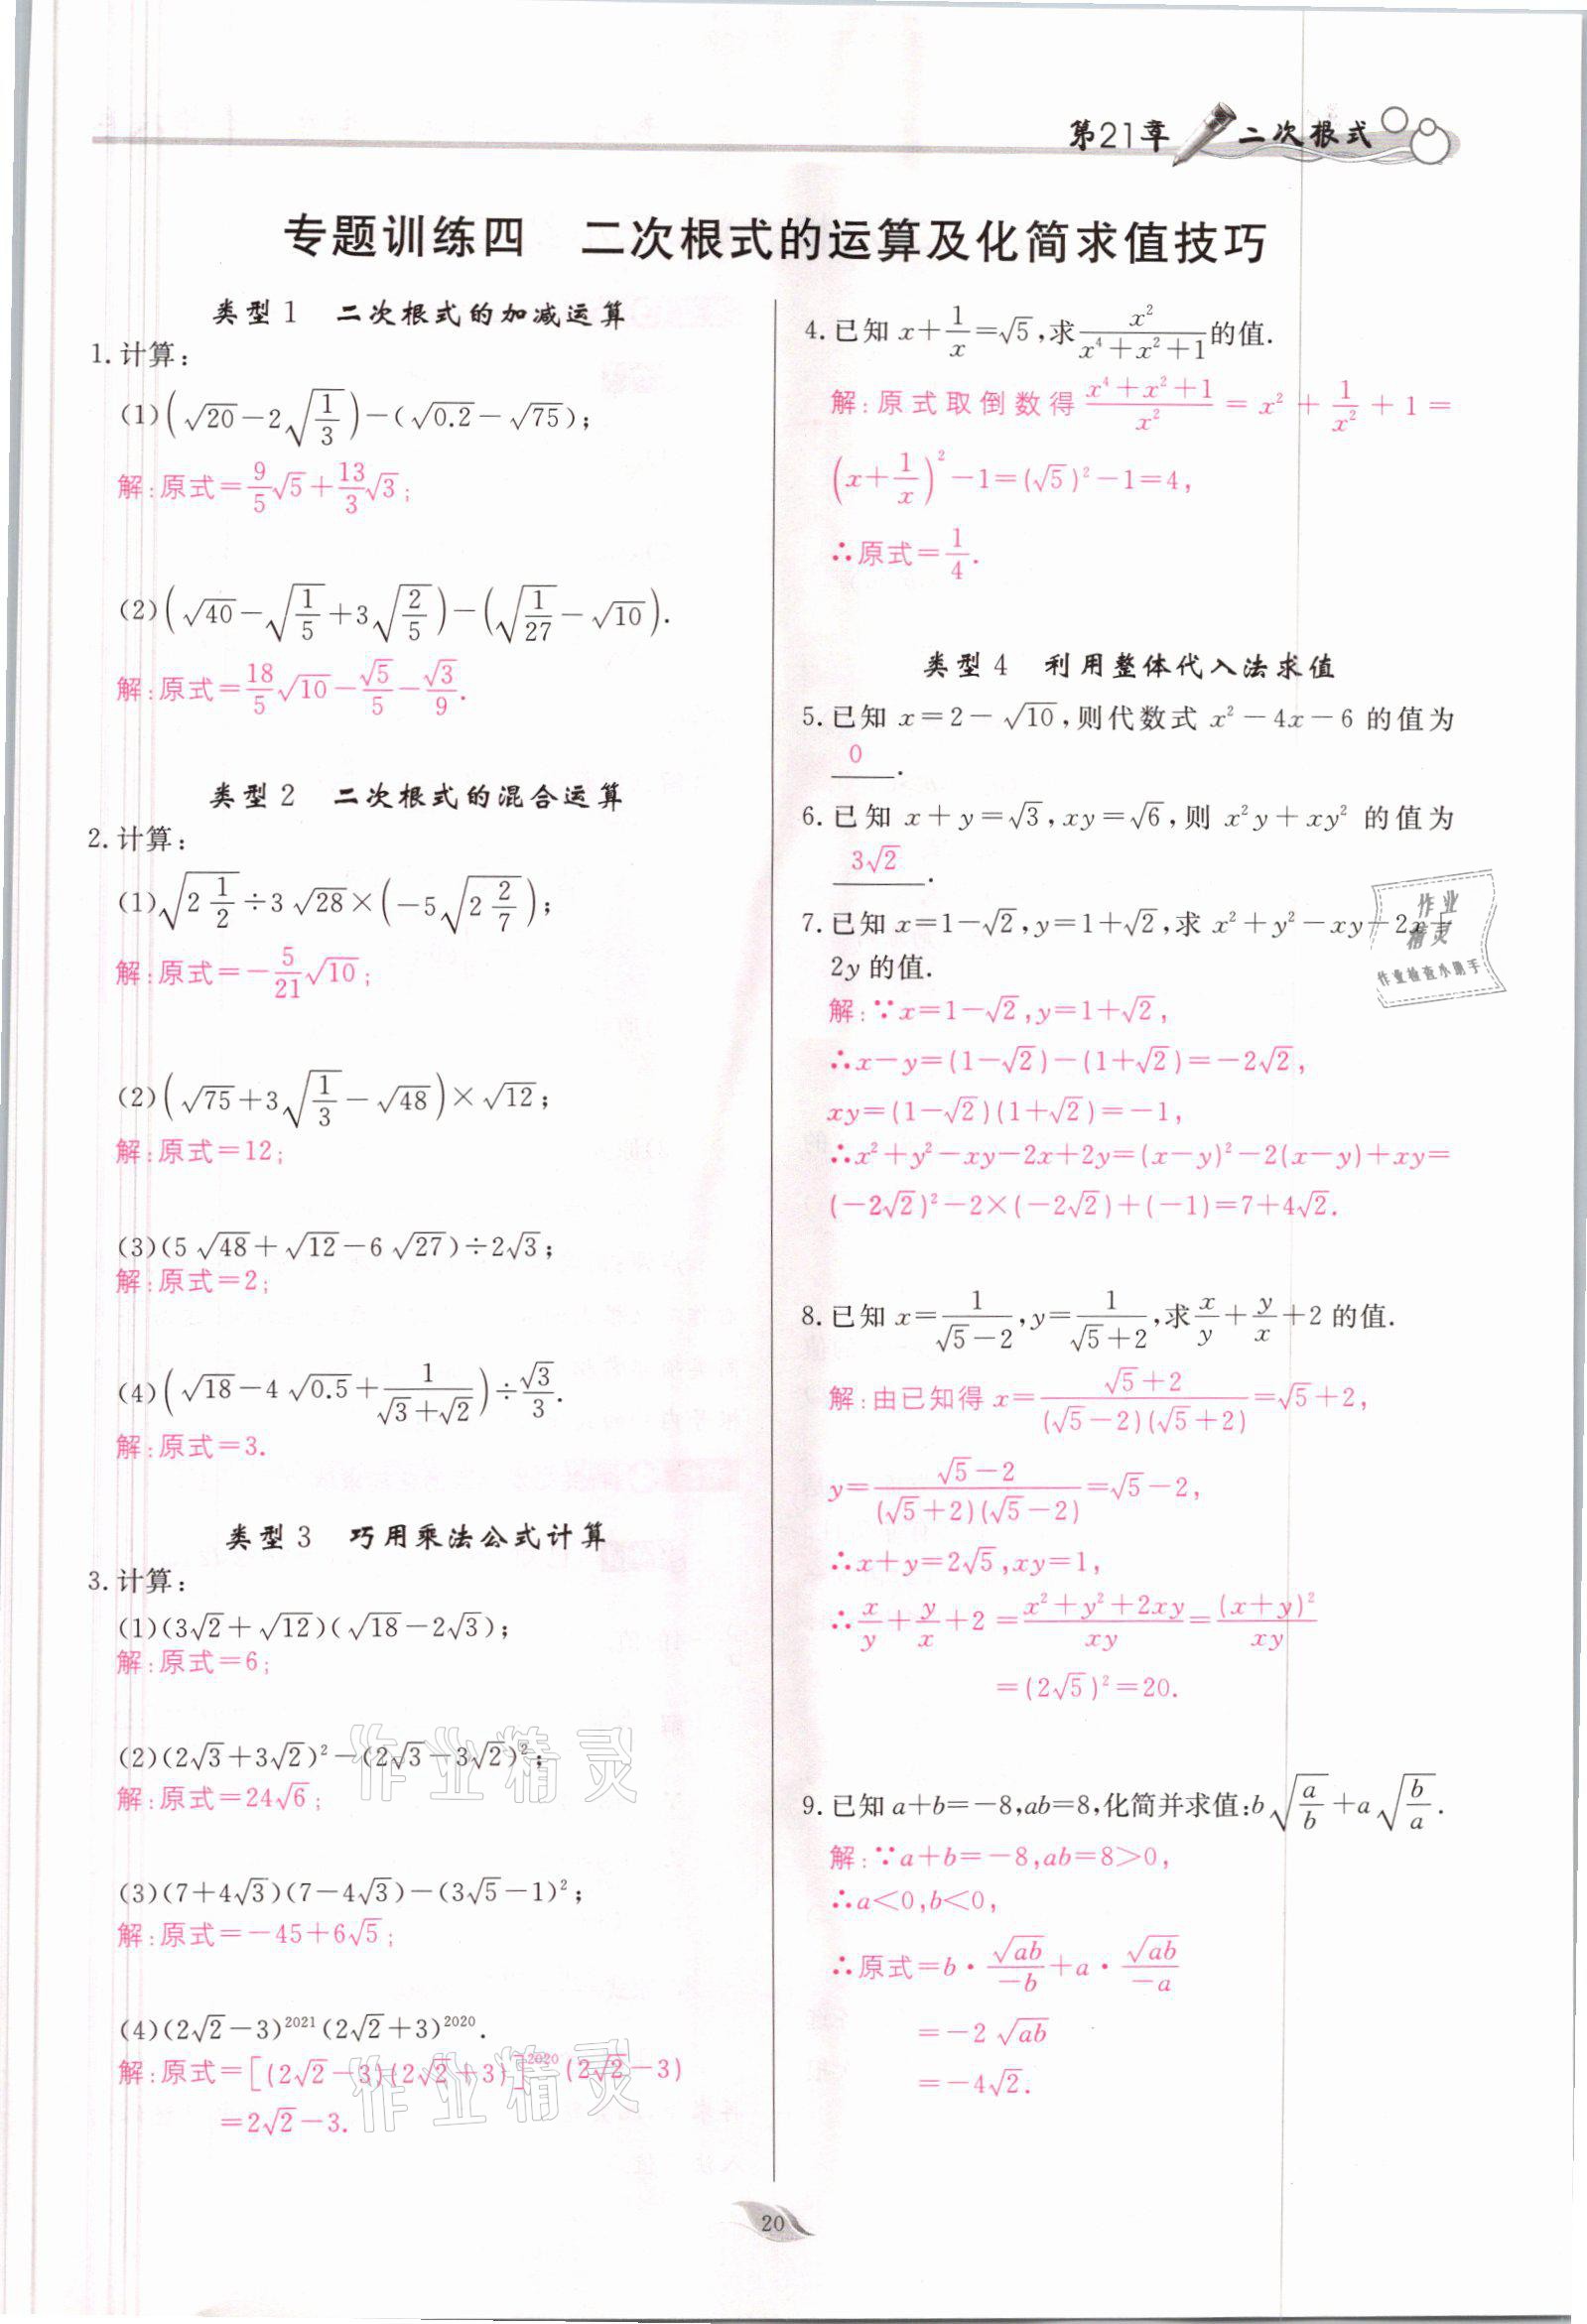 第21章 二次根式
专题训练四 二次根式的运算及化简求值技巧
类型1 二次根式的加减运算
1.计算:
(1)(√20-2√(1/3))-(√0.2-√75);
解:原式=9/5√5+13/3√3;
(2)(√40-√(1/5)+3√(2/5))-(√(1/27)-√10).
解:原式=18/5√10-√5/5-√3/9.
类型2 二次根式的混合运算
2.计算:
(1)√(2 1/2)÷3√28×(-5√(2 2/7));
解:原式=-5/21√10;
(2)(√75+3√(1/3)-√48)×√12;
解:原式=12;
(3)(5√48+√12-6√27)÷2√3;
解:原式=2;
(4)(√18-4√0.5+1/(√3+√2))÷√3/3.
解:原式=3.
类型3 巧用乘法公式计算
3.计算:
(1)(3√2+√12)(√18-2√3);
解:原式=6;
(2)(2√3+3√2)²-(2√3-3√2)²;
解:原式=24√6;
(3)(7+4√3)(7-4√3)-(3√5-1)²;
解:原式=-45+6√5;
(4)(2√2-3)²⁰²¹(2√2+3)²⁰²⁰.
解:原式=[(2√2-3)(2√2+3)]²⁰²⁰(2√2-3)
=2√2-3.
4.已知 x+1/x=√5,求x²/(x⁴+x²+1)的值.
解:原式取倒数得(x⁴+x²+1)/x²=x²+1/x²+1=
(x+1/x)²-1=(√5)²-1=4,
∴原式=1/4.
类型4 利用整体代入法求值
5.已知 x=2-√10,则代数式 x²-4x-6 的值为
0.
6.已知 x+y=√3,xy=√6,则 x²y+xy² 的值为
3√2.
7.已知 x=1-√2,y=1+√2,求 x²+y²-xy-2x+
2y 的值.
解:∵x=1-√2,y=1+√2,
∴x-y=(1-√2)-(1+√2)=-2√2,
xy=(1-√2)(1+√2)=-1,
∴x²+y²-xy-2x+2y=(x-y)²-2(x-y)+xy=
(-2√2)²-2×(-2√2)+(-1)=7+4√2.
8.已知 x=1/(√5-2),y=1/(√5+2),求x/y+y/x+2 的值.
解:由已知得 x=(√5+2)/((√5-2)(√5+2))=√5+2,
y=(√5-2)/((√5+2)(√5-2))=√5-2,
∴x+y=2√5,xy=1,
∴x/y+y/x+2=(x²+y²+2xy)/xy=(x+y)²/xy
=(2√5)²=20.
9.已知 a+b=-8,ab=8,化简并求值:b√(a/b)+a√(b/a).
解:∵a+b=-8,ab=8>0,
∴a<0,b<0,
∴原式=b·√ab/-b+a·√ab/-a
=-2√ab
=-4√2.
作业
精灵
作业检查小助手
作业精灵
作业精灵
20